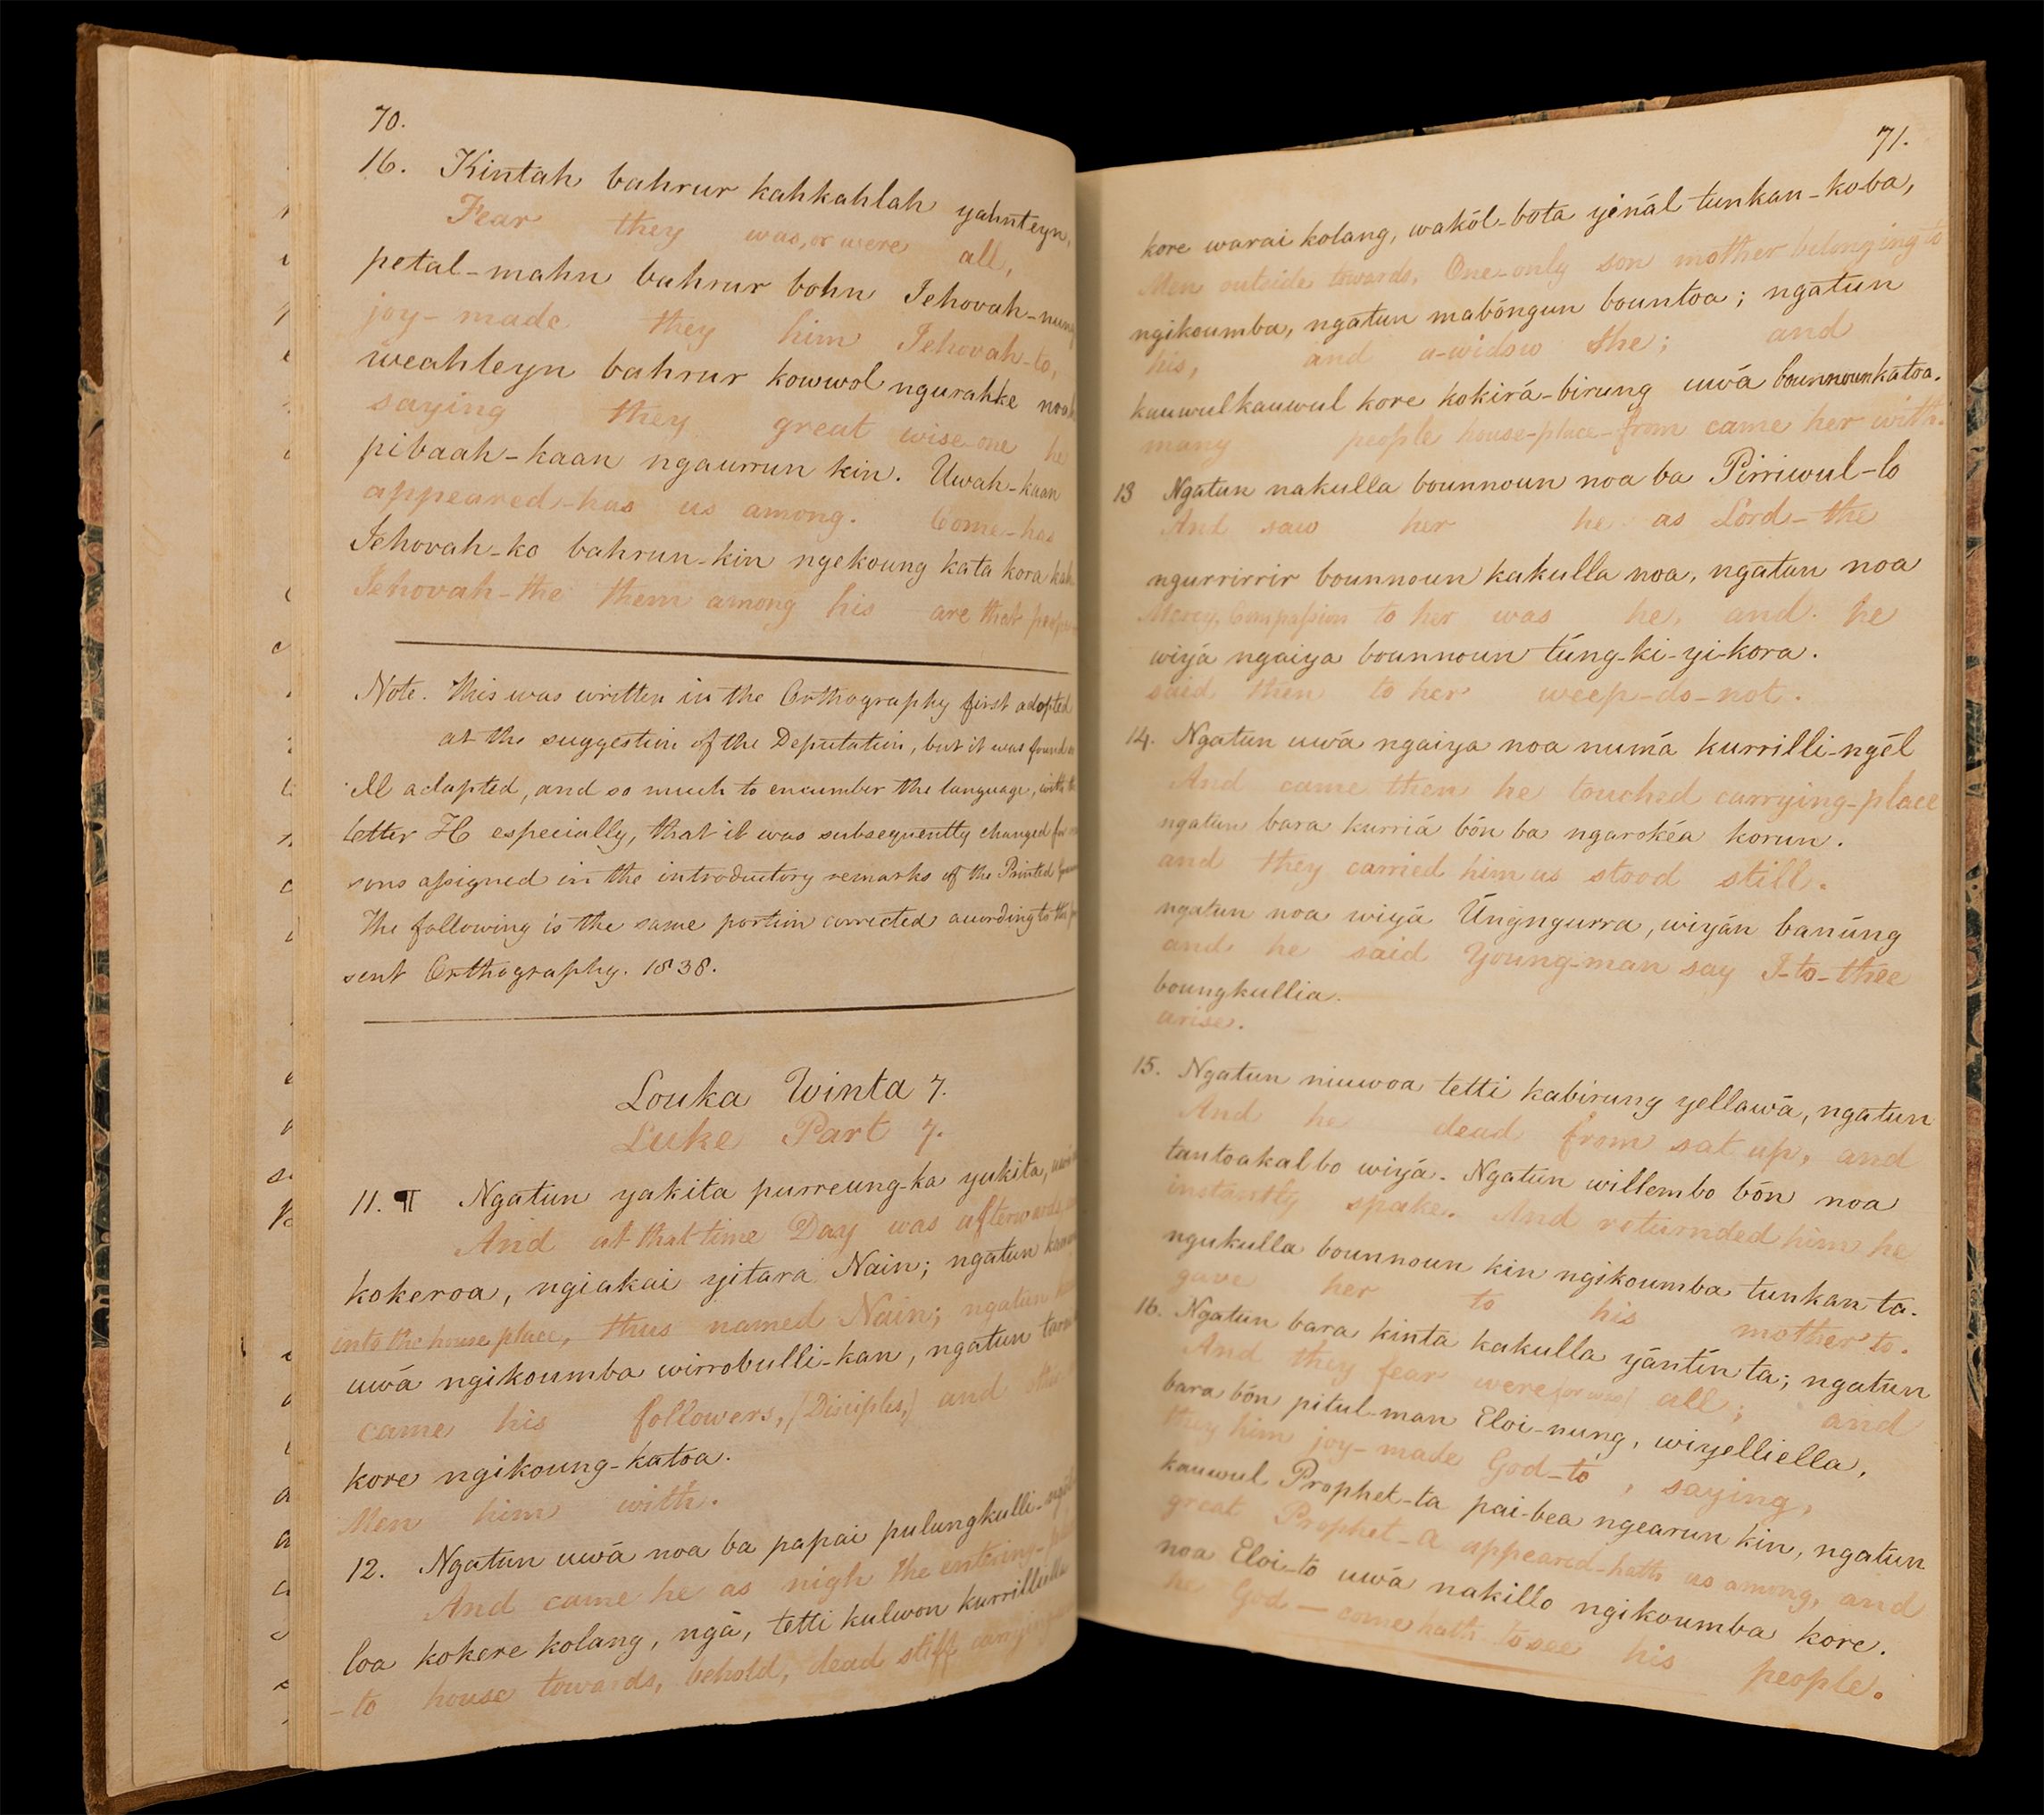 70.
16. Kintah bahrur kahkahlah yahnteyn,
Fear they was, or were all,
petal-mahn bahrur bohn Jehovah-nung
joy-made they him Jehovah-to,
weahleyn bahrur kowwol ngurahke noah
saying they great wise-one he
pibaah-kaan ngaurrun kin. Uwah-kaan
appeared-has us among. Come-has
Jehovah-ko bahrun-kin ngekoung kata kora
Jehovah-the them among his are that
Note. This was written in the Orthography first adopted
at the suggestion of the Deputation, but it was found
ill adapted, and so much to encumber the language, with
letter H especially, that it was subsequently changed for
sons assigned in the introductory remarks of the Printed
The following is the same portion corrected according to the
sent Orthography. 1838.
Louka Winta 7.
Luke Part 7.
11. ¶ Ngatun yakita purreung-ka yukita,
And at that time Day was afterwards
kokeroa, ngiakai yitara Nain; ngatun
into the house place, thus named Nain; ngatun
uwá ngikoumba wirrobulli-kan, ngatun
came his followers, (Disciples,) and
kore ngikoung-katoa.
Men him with.
12. Ngatun uwá noa ba papai pulungkulli-ngél
And came he as nigh the entering-place
loa kokere kolang, ngá, tetti kulwon kurrillilla
-to house towards, behold, dead stiff carrying
71.
kore warai kolang, wakól-bota yinál tunkan-koba,
Men outside towards, One-only son mother belonging to
ngikoumba, ngatun mabóngun bountoa; ngatun
his, and a-widow she; and
kauwulkauwul kore kokirá-birung uwá bounnounkatoa.
many people house-place-from came her with.
13 Ngatun nakulla bounnoun noa ba Pirriwul-lo
And saw her he as Lord-the
ngurrirrir bounnoun kakulla noa, ngatun noa
Mercy, Compassion to her was he, and he
wiyá ngaiya bounnoun túng-ki-yi-kora.
said then to her weep-do-not.
14. Ngatun uwá ngaiya noa numá kurrilli-ngél
And came then he touched carrying-place
ngatun bara kurriá bón ba ngarokéa korun.
and they carried him us stood still.
ngatun noa wiyá Úngngurra, wiyán banúng
and he said Young-man say I-to-thee
boungkullia.
arise.
15. Ngatun niuwoa tetti kabirung yellawá, ngatun
And he dead from sat up, and
tantoakal bo wiyá. Ngatun willembo bón noa
instantly spake. And returnded him he
ngukulla bounnoun kin ngikoumba tunkan ta.
gave her to his mother to.
16. Ngatun bara kinta kakulla yántín ta; ngatun
And they fear were (or was) all; and
bara bón pitul-man Eloi-nung, wiyelliella,
they him joy-made God-to, saying,
kauwul Prophet-ta pai-bea ngearun kin, ngatun
great Prophet-a appeared-hath us among, and
noa Eloi-to uwá nakillo ngikoumba kore.
he God — come hath to see his people.